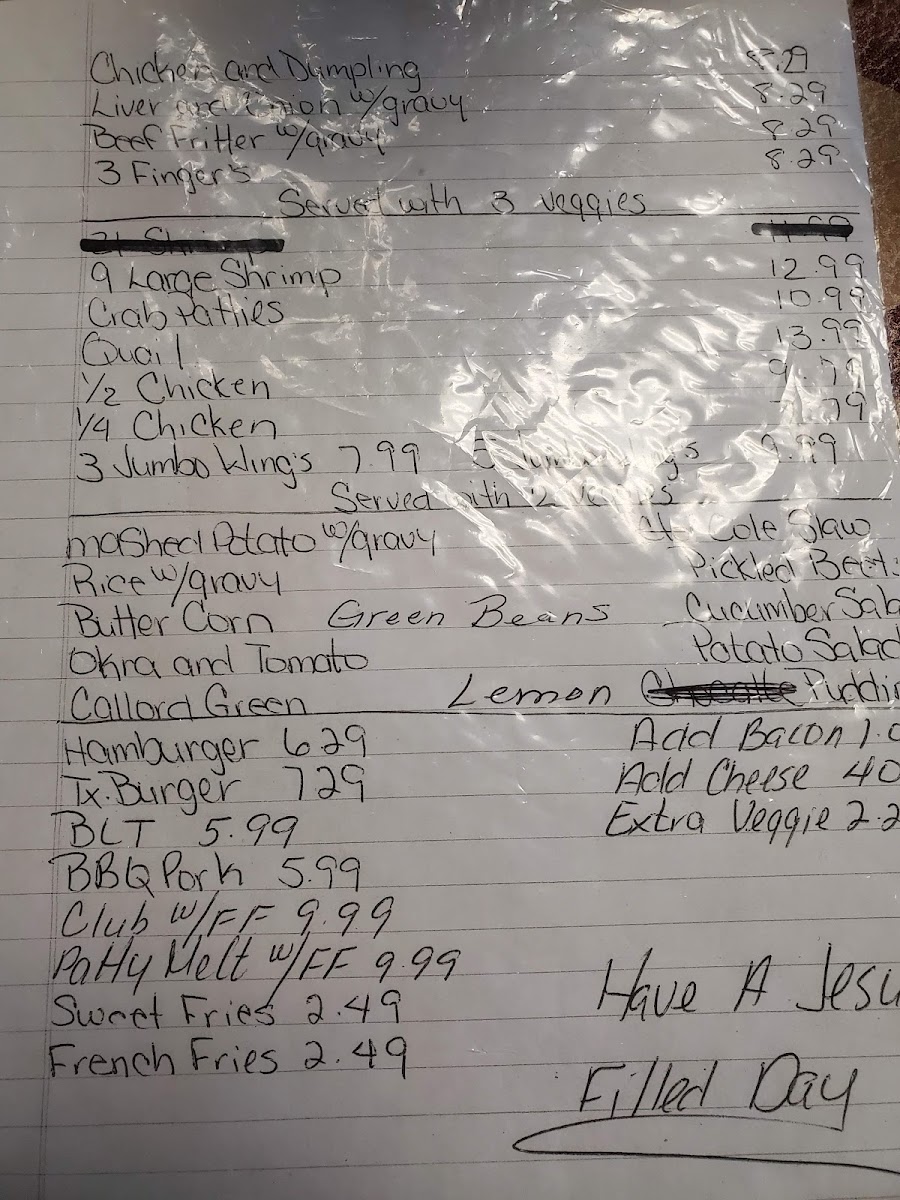 Chicken and Dumpling 8.29
Liver and Onion w/gravy 8.29
Beef Fritter w/gravy 8.29
3 Finger's 8.29
Served with 3 veggies
9 Large Shrimp 12.99
Crab Patties 10.99
Quail 13.99
1/2 Chicken 9.79
1/4 Chicken
3 Jumbo Wing's 7.99 5 Jumbo Wing's 9.99
Served with 2 veggies
mashed Potato w/gravy Cole Slaw
Rice w/gravy Pickled Beets
Butter Corn Green Beans Cucumber Sala
Okra and Tomato Potato Salad
Callord Green Lemon Puddin
Hamburger 629 Add Bacon 1.0
Tx. Burger 729 Add Cheese 40
BLT 5.99 Extra Veggie 2.2
BBQ Pork 5.99
Club w/FF 9.99
Patty Melt w/FF 9.99
Sweet Fries 2.49
French Fries 2.49
Have A Jesu
Filled Day